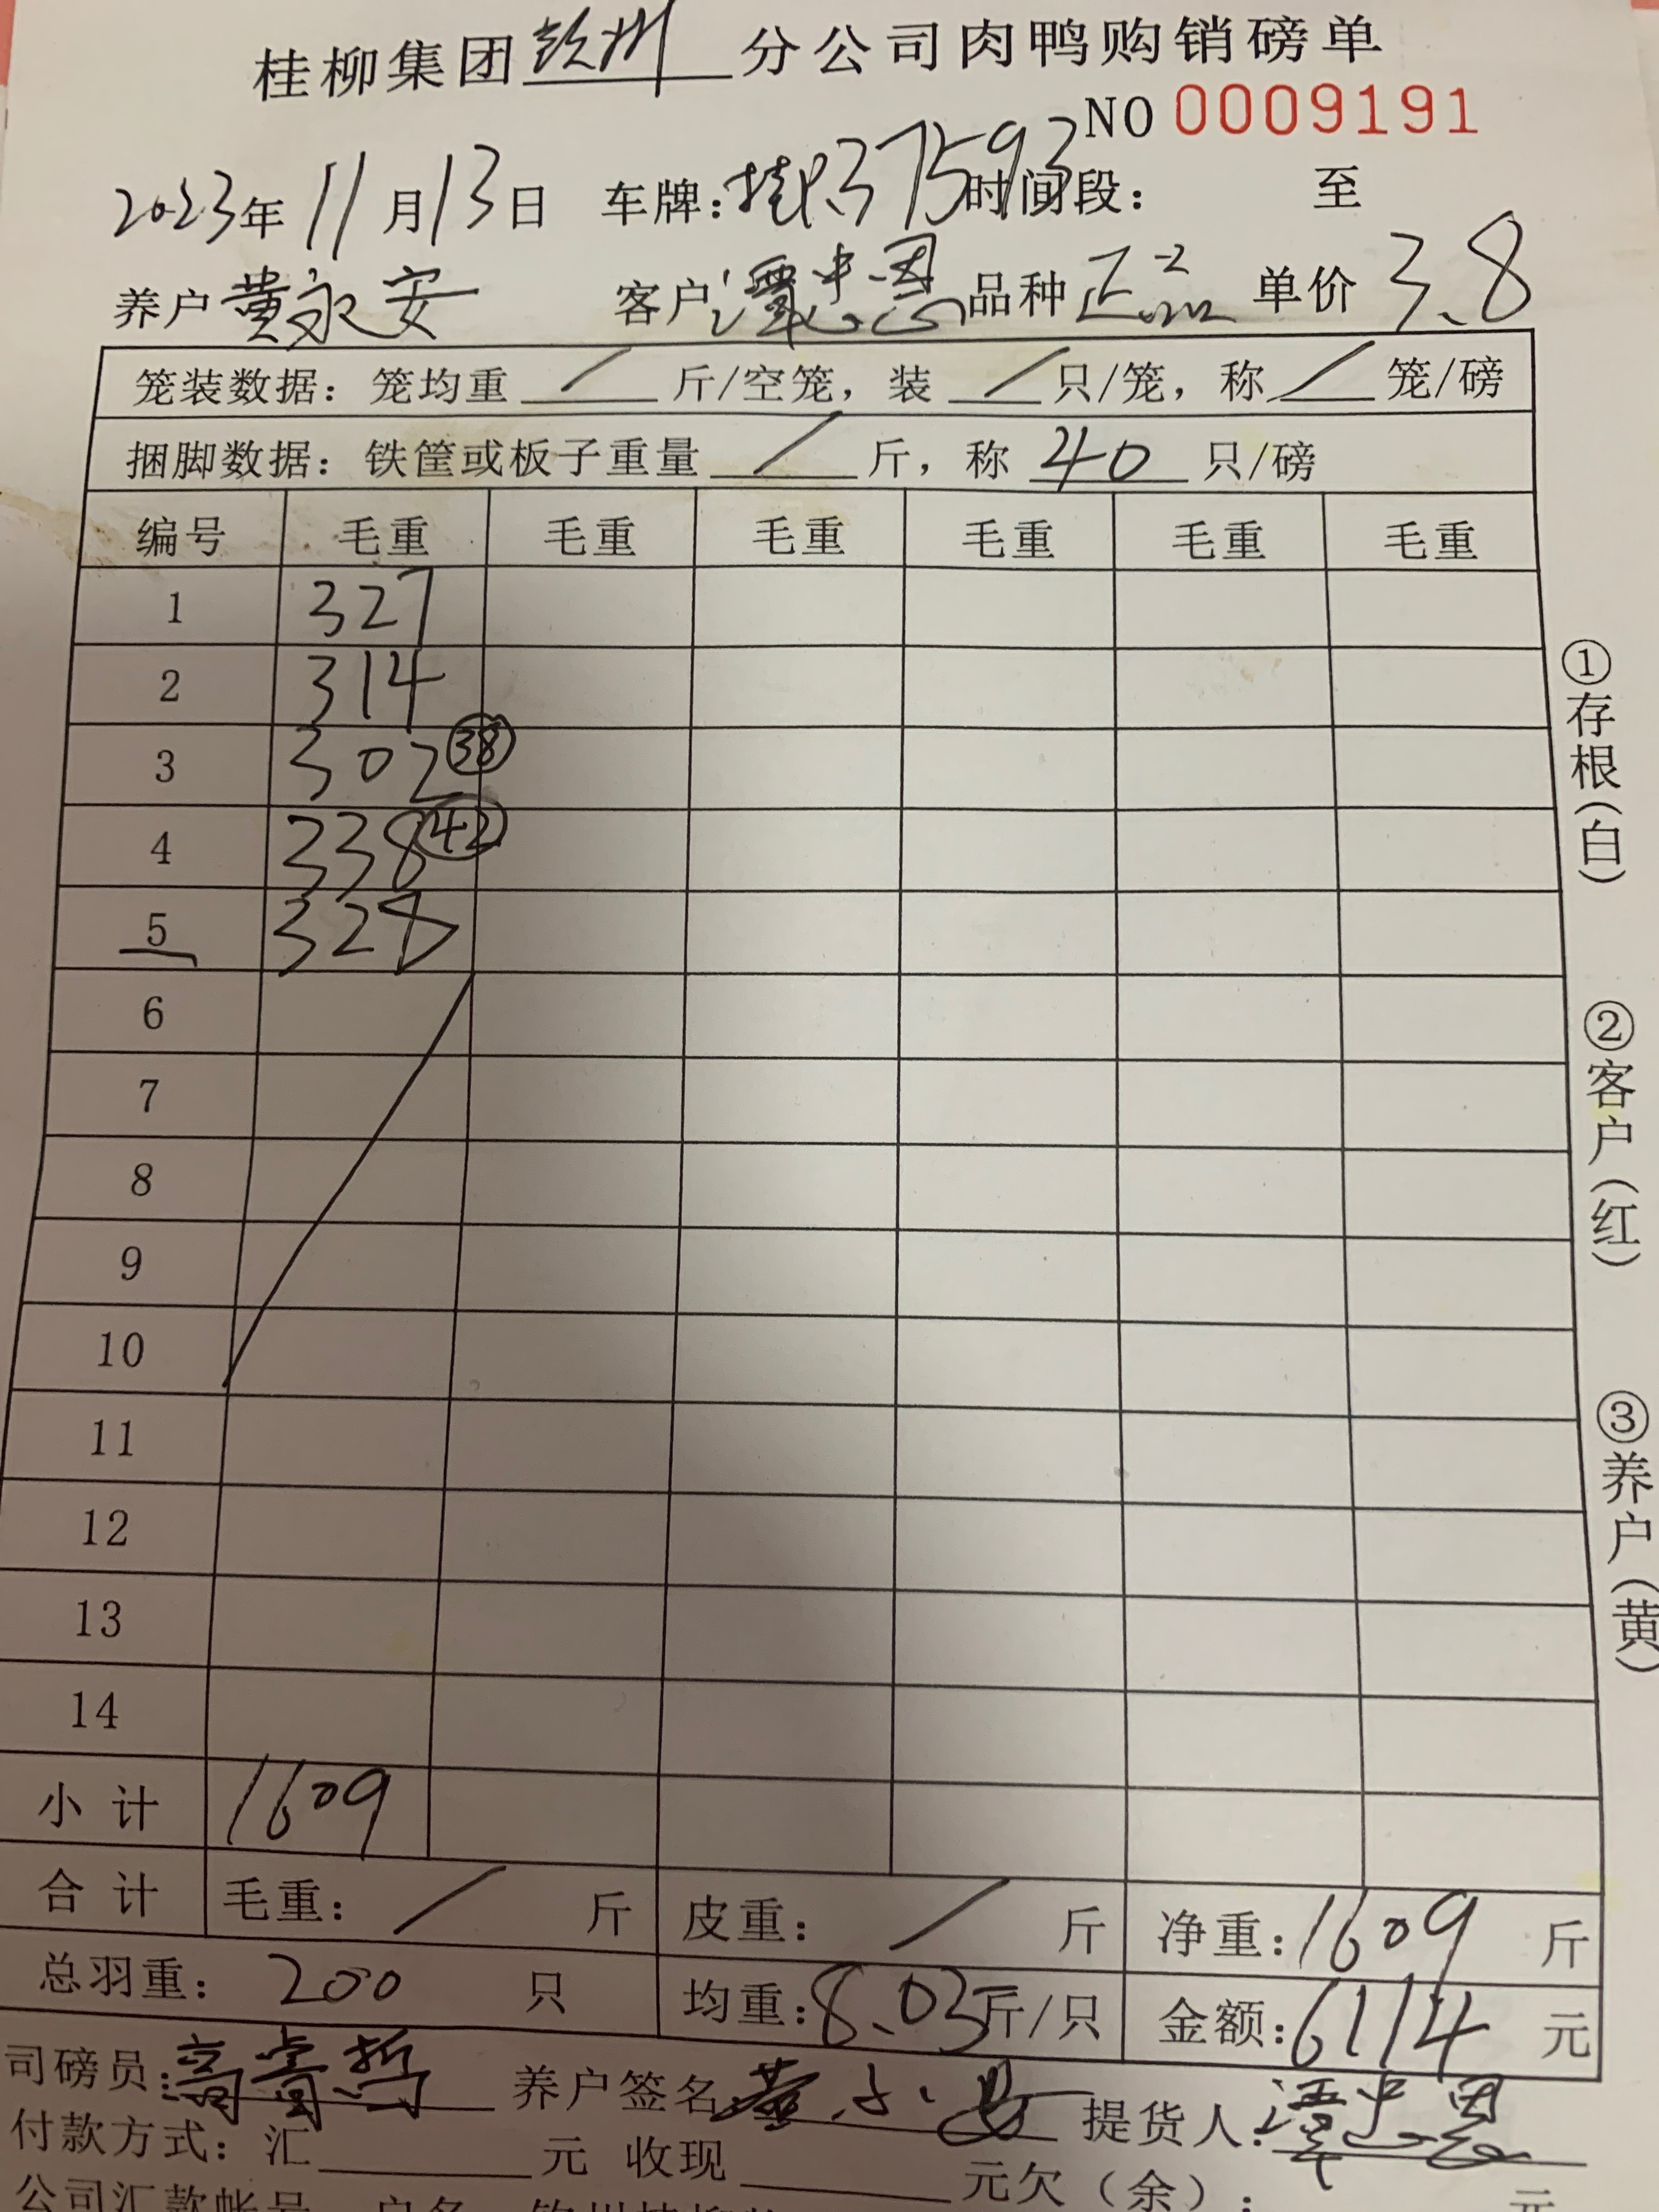 桂柳集团钦州分公司肉鸭购销磅单
NO 0009191
2023年11月13日 车牌:桂P.37593 时间段: 至
养户 黄永安 客户 覃忠恩 品种 正品 单价 3.8
笼装数据: 笼均重 / 斤/空笼, 装 / 只/笼, 称 / 笼/磅
捆脚数据: 铁筐或板子重量 / 斤, 称 40 只/磅
编号 毛重 毛重 毛重 毛重 毛重 毛重
1 327
2 314
3 302 ㊳
4 338 ㊷
5 328
6
7
8
9
10
11
12
13
14
小计 1609
合计 毛重: / 斤 皮重: / 斤 净重: 1609 斤
总羽重: 200 只 均重: 8.03 斤/只 金额: 6114 元
司磅员: 养户签名 提货人: 覃忠恩
付款方式: 汇 元 收现 元 欠(余): 元
公司汇款帐号
①存根(白)
②客户(红)
③养户(黄)